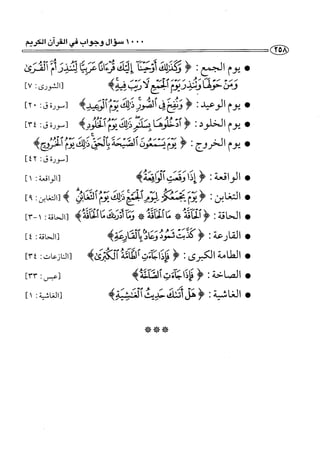 ١٠٠٠ سؤال وجواب في القرآن الكريم
٢٥٨
• يوم الجمع: ﴿ وَكَذَٰلِكَ أَوْحَيْنَا إِلَيْكَ قُرْآنًا عَرَبِيًّا لِّتُنذِرَ أُمَّ الْقُرَىٰ
وَمَنْ حَوْلَهَا وَتُنذِرَ يَوْمَ الْجَمْعِ لَا رَيْبَ فِيهِ ﴾ [الشورى: ٧]
• يوم الوعيد: ﴿ وَنُفِخَ فِي الصُّورِ ذَٰلِكَ يَوْمُ الْوَعِيدِ ﴾ [سورة ق: ٢٠]
• يوم الخلود: ﴿ ادْخُلُوهَا بِسَلَامٍ ذَٰلِكَ يَوْمُ الْخُلُودِ ﴾ [سورة ق: ٣٤]
• يوم الخروج: ﴿ يَوْمَ يَسْمَعُونَ الصَّيْحَةَ بِالْحَقِّ ذَٰلِكَ يَوْمُ الْخُرُوجِ ﴾
[سورة ق: ٤٢]
• الواقعة: ﴿ إِذَا وَقَعَتِ الْوَاقِعَةُ ﴾ [الواقعة: ١]
• التغابن: ﴿ يَوْمَ يَجْمَعُكُمْ لِيَوْمِ الْجَمْعِ ذَٰلِكَ يَوْمُ التَّغَابُنِ ﴾ [التغابن: ٩]
• الحاقة: ﴿ الْحَاقَّةُ * مَا الْحَاقَّةُ * وَمَا أَدْرَاكَ مَا الْحَاقَّةُ ﴾ [الحاقة: ١-٣]
• القارعة: ﴿ كَذَّبَتْ ثَمُودُ وَعَادٌ بِالْقَارِعَةِ ﴾ [الحاقة: ٤]
• الطامة الكبرى: ﴿ فَإِذَا جَاءَتِ الطَّامَّةُ الْكُبْرَىٰ ﴾ [النازعات: ٣٤]
• الصاخة: ﴿ فَإِذَا جَاءَتِ الصَّاخَّةُ ﴾ [عبس: ٣٣]
• الغاشية: ﴿ هَلْ أَتَاكَ حَدِيثُ الْغَاشِيَةِ ﴾ [الغاشية: ١]
* * *